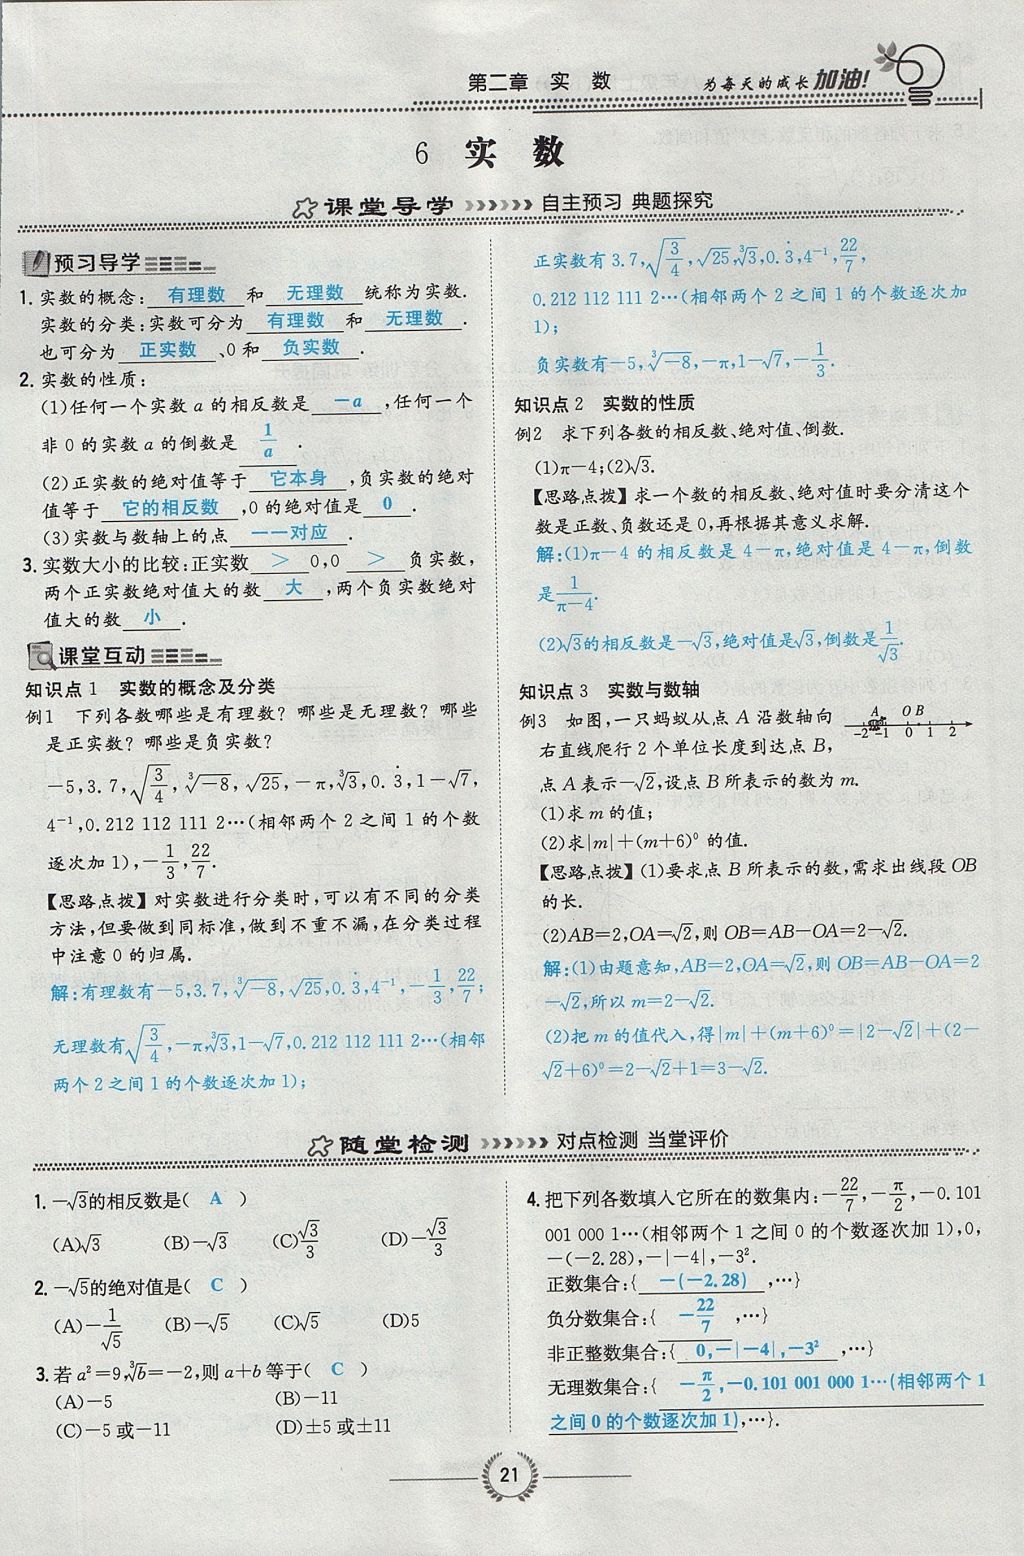 第二章 实 数
为每天的成长加油!
6 实 数
课堂导学 自主预习 典题探究
预习导学
1. 实数的概念: 有理数 和 无理数 统称为实数.
实数的分类:实数可分为 有理数 和 无理数 .
也可分为 正实数 、0 和 负实数 .
2. 实数的性质:
(1)任何一个实数 a 的相反数是 -a ,任何一个
非 0 的实数 a 的倒数是 1/a .
(2)正实数的绝对值等于 它本身 ,负实数的绝对
值等于 它的相反数 ,0 的绝对值是 0 .
(3)实数与数轴上的点 一一对应 .
3. 实数大小的比较:正实数 > 0,0 > 负实数,
两个正实数绝对值大的数 大 ,两个负实数绝对
值大的数 小 .
课堂互动
知识点 1 实数的概念及分类
例1 下列各数哪些是有理数? 哪些是无理数? 哪些
是正实数? 哪些是负实数?
-5,3.7,√(3/4),∛-8,√25,-π,∛3,0.3̇,1-√7,
4⁻¹,0.212 112 111 2…(相邻两个 2 之间 1 的个数
逐次加 1),-1/3,22/7.
【思路点拨】对实数进行分类时,可以有不同的分类
方法,但要做到同标准,做到不重不漏,在分类过程
中注意 0 的归属.
解:有理数有-5,3.7,∛-8,√25,0.3̇,4⁻¹,-1/3,22/7;
无理数有√(3/4),-π,∛3,1-√7,0.212 112 111 2…(相邻
两个 2 之间 1 的个数逐次加 1);
正实数有 3.7,√(3/4),√25,∛3,0.3̇,4⁻¹,22/7,
0.212 112 111 2…(相邻两个 2 之间 1 的个数逐次加
1);
负实数有-5,∛-8,-π,1-√7,-1/3.
知识点 2 实数的性质
例2 求下列各数的相反数、绝对值、倒数.
(1)π-4;(2)√3.
【思路点拨】求一个数的相反数、绝对值时要分清这个
数是正数、负数还是 0,再根据其意义求解.
解:(1)π-4 的相反数是 4-π,绝对值是 4-π,倒数
是1/(π-4).
(2)√3的相反数是-√3,绝对值是√3,倒数是1/√3.
知识点 3 实数与数轴
例3 如图,一只蚂蚁从点 A 沿数轴向
右直线爬行 2 个单位长度到达点 B,
点 A 表示-√2,设点 B 所表示的数为 m.
A O B
-2 -1 0 1 2
(1)求 m 的值;
(2)求|m|+(m+6)⁰ 的值.
【思路点拨】(1)要求点 B 所表示的数,需求出线段 OB
的长.
(2)AB=2,OA=√2,则 OB=AB-OA=2-√2.
解:(1)由题意知,AB=2,OA=√2,则 OB=AB-OA=2
-√2,所以 m=2-√2.
(2)把 m 的值代入,得|m|+(m+6)⁰=|2-√2|+(2-
√2+6)⁰=2-√2+1=3-√2.
随堂检测 对点检测 当堂评价
1. -√3的相反数是( A )
(A)√3 (B)-√3 (C)√3/3 (D)-√3/3
2. -√5的绝对值是( C )
(A)-1/√5 (B)-√5 (C)√5 (D)5
3. 若 a²=9,∛b=-2,则 a+b 等于( C )
(A)-5 (B)-11
(C)-5 或-11 (D)±5 或±11
4. 把下列各数填入它所在的数集内:-22/7,-π/2,-0.101
001 000 1…(相邻两个 1 之间 0 的个数逐次加 1),0,
-(-2.28),-|-4|,-3².
正数集合:{ -(-2.28) ,…}
负分数集合:{ -22/7 ,…}
非正整数集合:{ 0,-|-4|,-3² ,…}
无理数集合:{ -π/2,-0.101 001 000 1…(相邻两个 1
之间 0 的个数逐次加 1),…}.
21